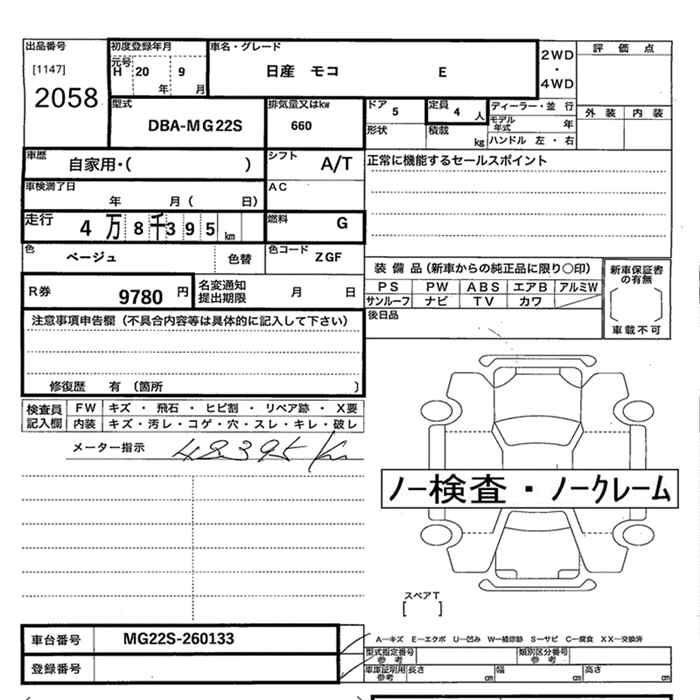 出品番号 初度登録年月 車名・グレード 2WD 評価点
[1147] 元号 H 20 年 9 月 日産 モコ E ・
2058 4WD
型式 排気量又はkw ドア 5 定員 4 人 ディーラー・並 行 外装 内装
DBA-MG22S 660 モデル年式 年
形状 積載 kg ハンドル 左・右
車歴 自家用・( ) シフト A/T 正常に機能するセールスポイント
車検満了日 年 月( 日) AC
走行 4万8千395km 燃料 G
色 ベージュ 色替 色コード ZGF
装備品(新車からの純正品に限り○印) 新車保証書の有無
R券 9780円 名変通知提出期限 月 日 PS PW ABS エアB アルミW
サンルーフ ナビ TV カワ
注意事項申告欄(不具合内容等は具体的に記入して下さい) 後日品 車載不可
修復歴 有 〔箇所 〕
検査員記入欄 FW キズ・飛石・ヒビ割・リペア跡・X要
内装 キズ・汚レ・コゲ・穴・スレ・キレ・破レ
メーター指示 48395Km
ノー検査・ノークレーム
スペアT
[ ]
車台番号 MG22S-260133 A―キズ E―エクボ U―凹み W―補修跡 S―サビ C―腐食 XX―交換済
型式指定番号 参考 類別区分番号 参考
登録番号 車庫証明用 参考 長さ cm 幅 cm 高さ cm